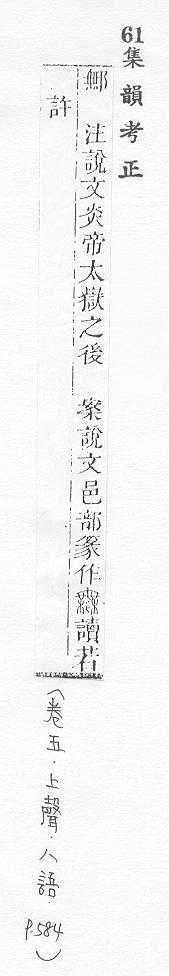 61集韻考正
鄦 注說文炎帝太嶽之後 案說文邑部篆作讀若
許
（卷五．上聲．八語．P.584）